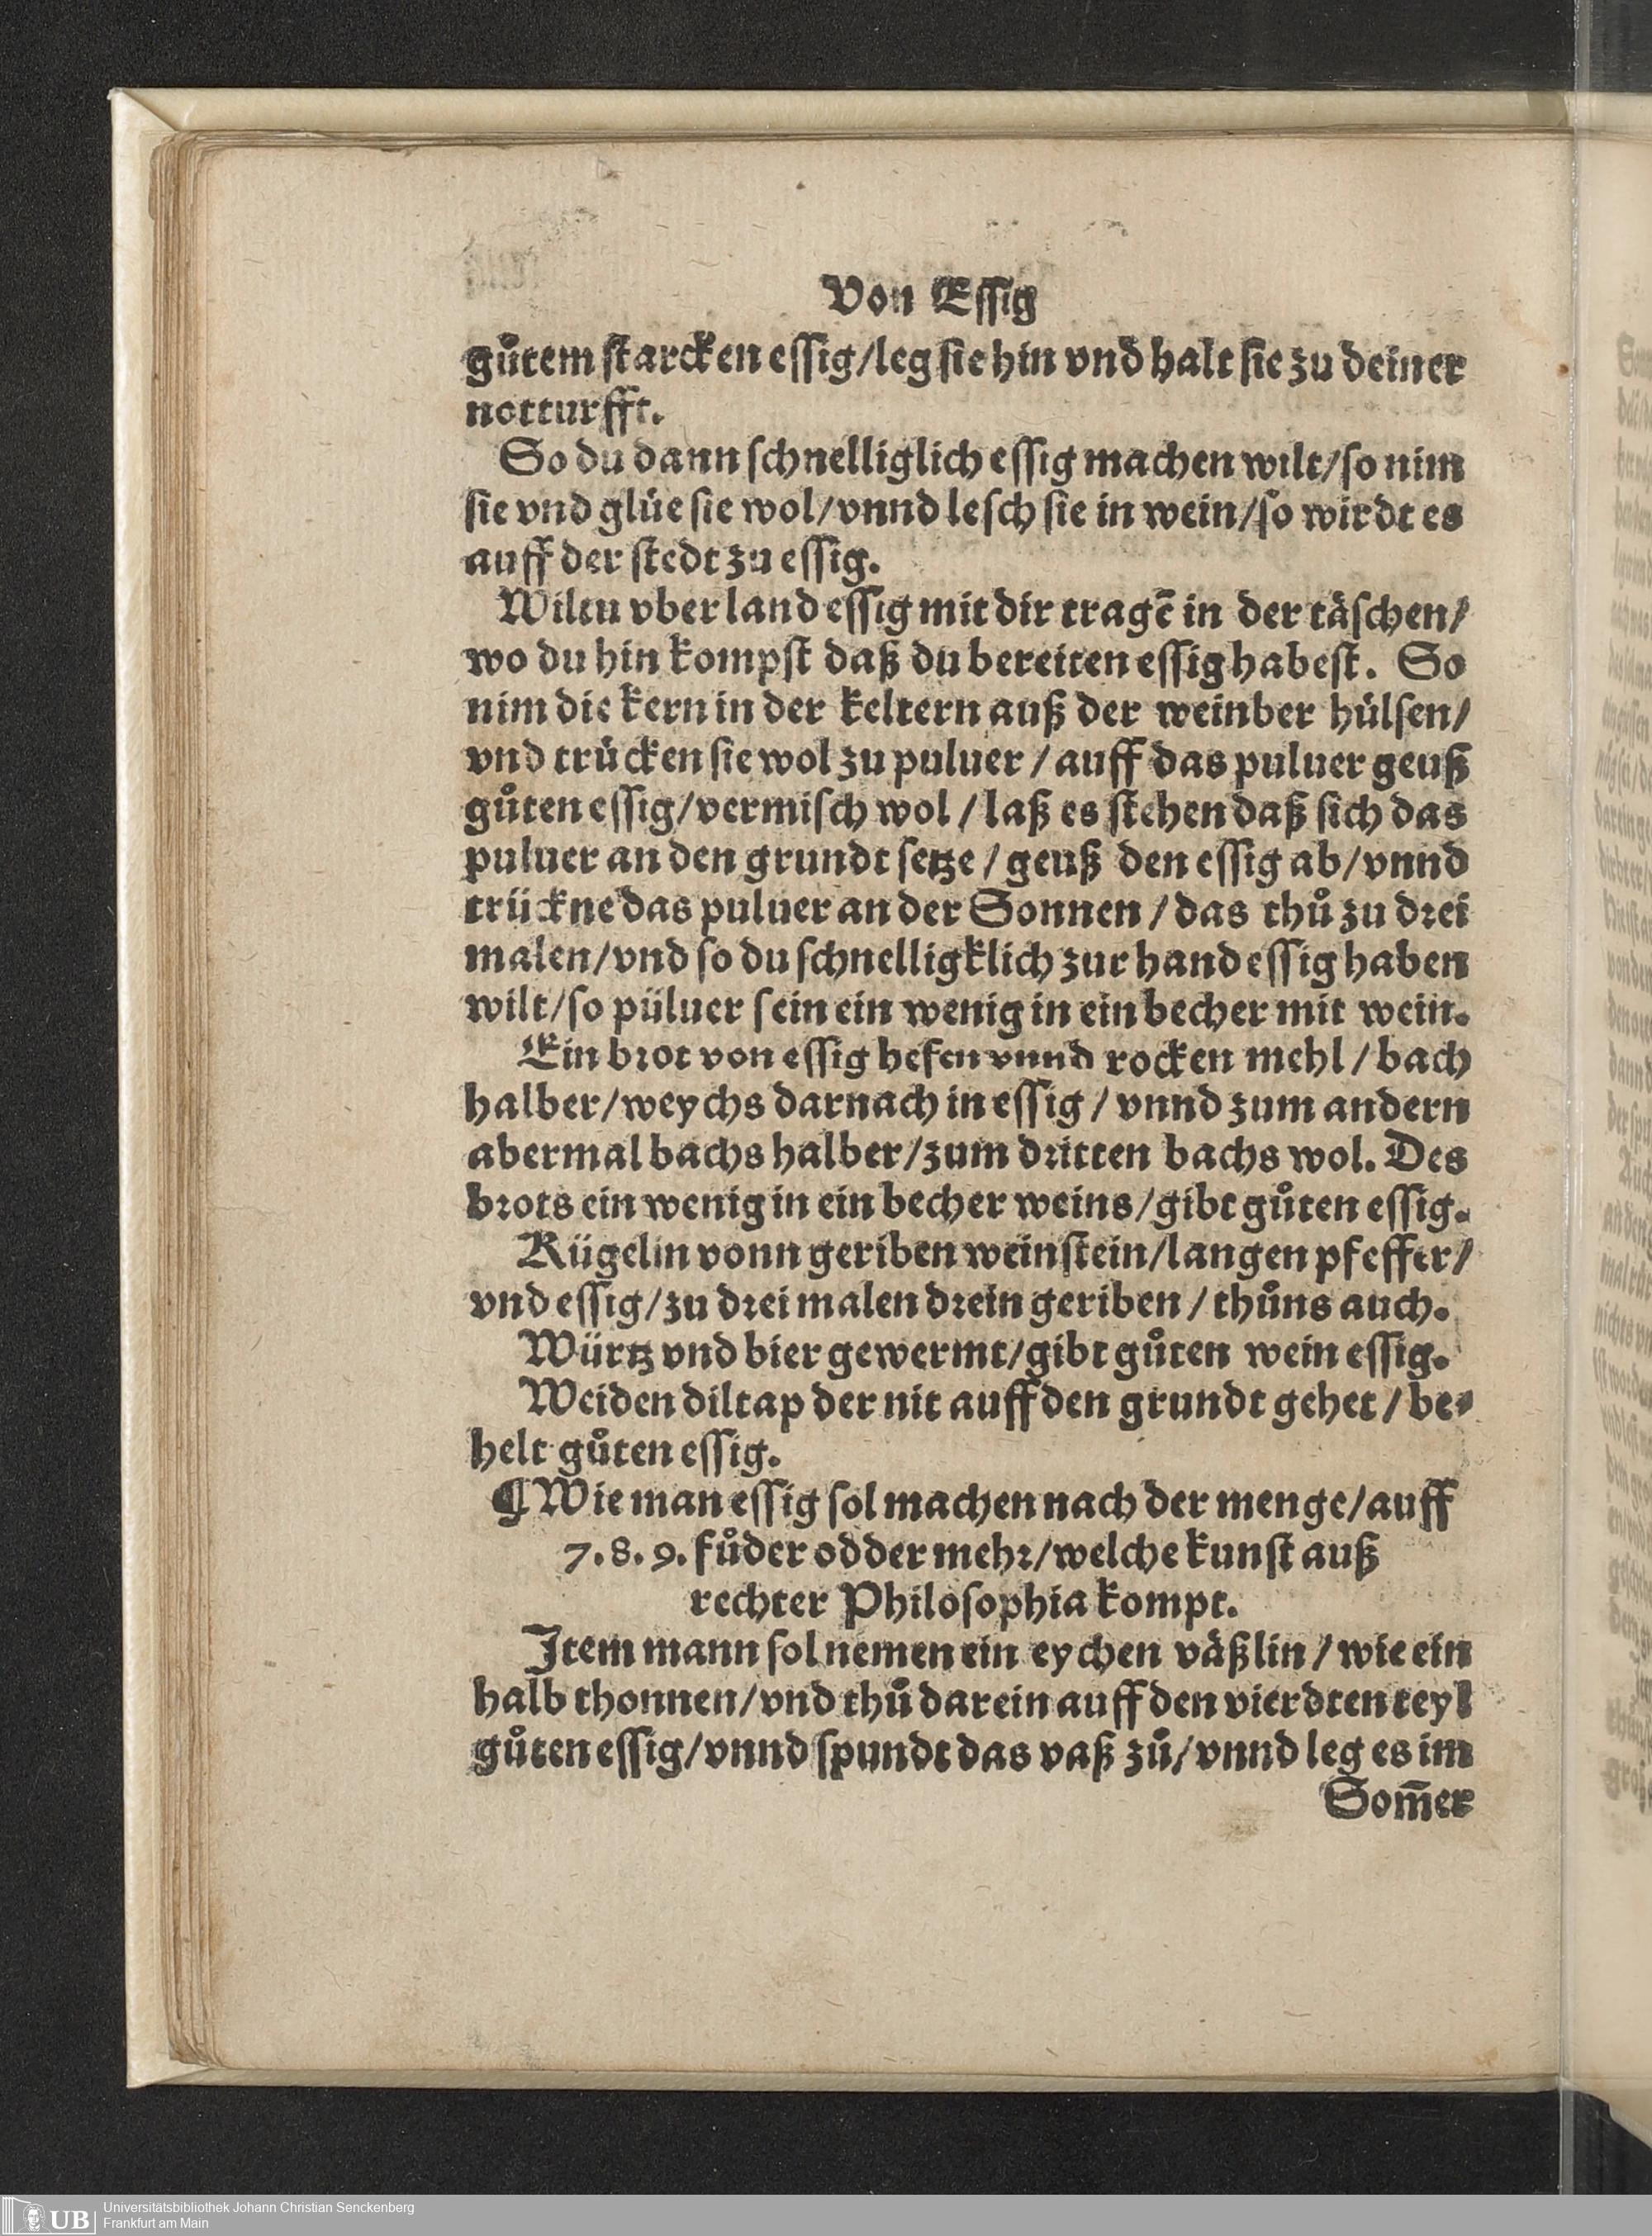 Von Essig
gůtem starcken essig/leg sie hin vnd halt sie zu deiner
notturfft.
So du dann schnelliglich essig machen wilt/so nim
sie vnd glüe sie wol/vnnd lesch sie in wein/so wirdt es
auff der stedt zu essig.
Wiltu vber land essig mit dir tragē in der täschen/
wo du hin kompst daß du bereiten essig habest. So
nim die kern in der keltern auß der weinber hülsen/
vnd trücken sie wol zu puluer / auff das puluer geuß
gůten essig/vermisch wol / laß es stehen daß sich das
puluer an den grundt setze / geuß den essig ab/vnnd
trückne das puluer an der Sonnen / das thů zu drei
malen/vnd so du schnelligklich zur hand essig haben
wilt/so püluer sein ein wenig in ein becher mit wein.
Ein brot von essig hefen vnnd rocken mehl / bach
halber/weychs darnach in essig / vnnd zum andern
abermal bachs halber/zum dritten bachs wol. Des
brots ein wenig in ein becher weins/gibt gůten essig.
Kügelin vonn geriben weinstein/langen pfeffer/
vnd essig/zu drei malen drein geriben / thůns auch.
Würtz vnd bier gewermt/gibt gůten wein essig.
Weiden diltap der nit auff den grundt gehet / be⸗
helt gůten essig.
¶ Wie man essig sol machen nach der menge/auff
7. 8. 9. fůder odder mehr/welche kunst auß
rechter Philosophia kompt.
Item mann sol nemen ein eychen väßlin / wie ein
halb thonnen/vnd thů darein auff den vierdten teyl
gůten essig/vnnd spundt das vaß zů/vnnd leg es im
Som̄er
UB Universitätsbibliothek Johann Christian Senckenberg
Frankfurt am Main